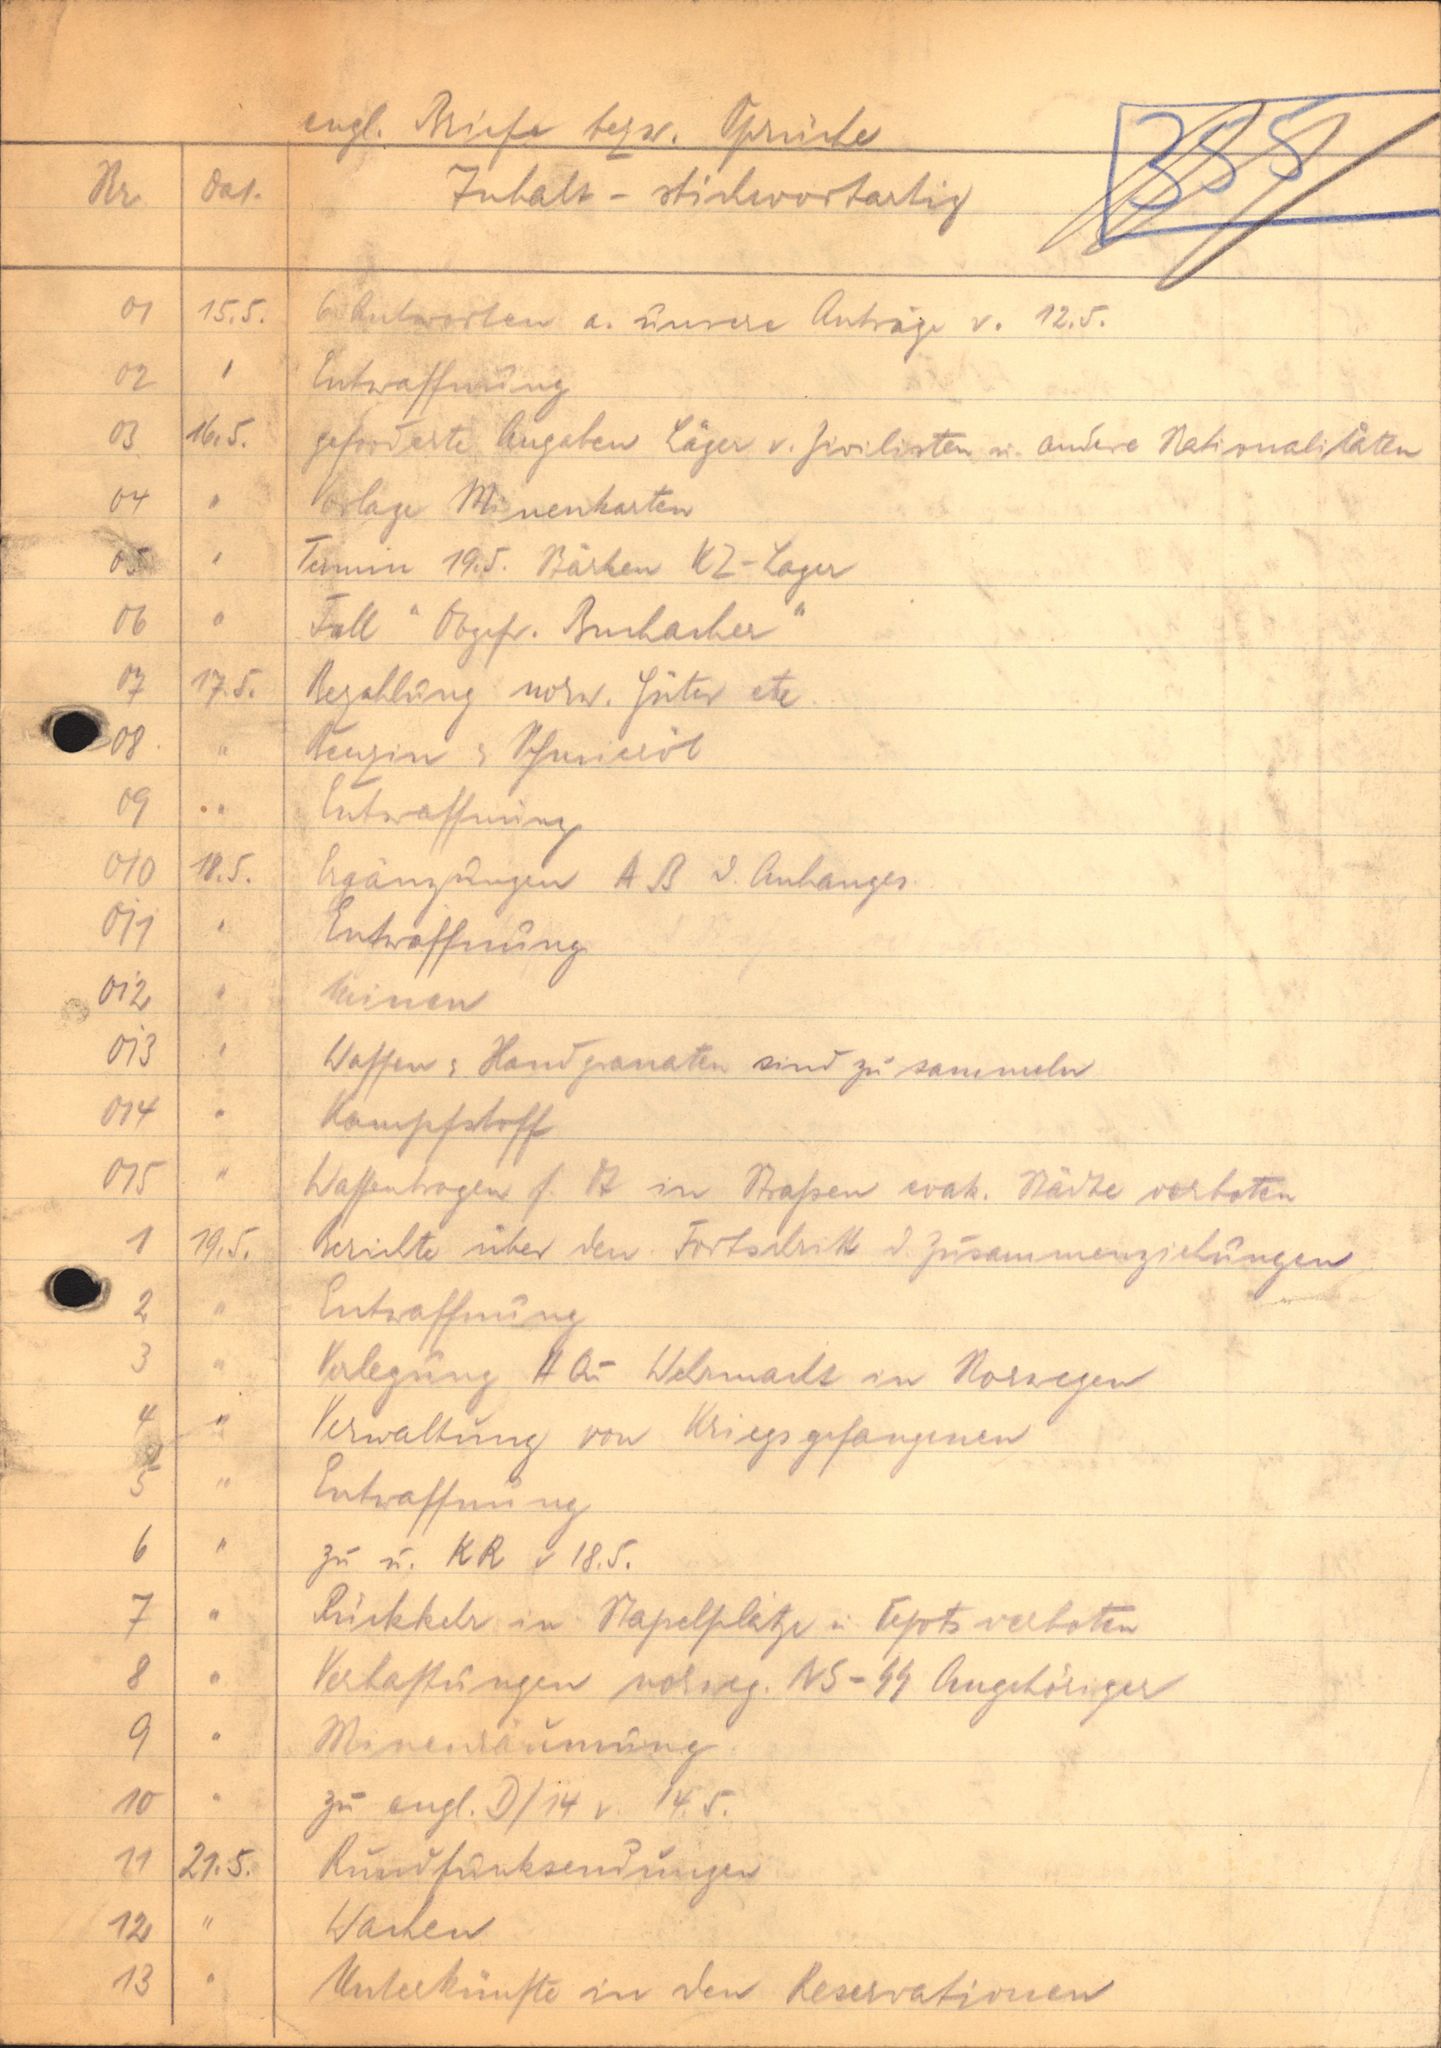 engl. Briefe bezw. Sprüche
355
Nr. Dat. Inhalt - stichwortartig
01 15.5. 6 Antworten a. unsere Anträge v. 12.5.
02 " Entwaffnung
03 16.5. geforderte Angaben Läger v. Zivilisten u. andere Nationalitäten
04 " Vorlage Minenkarten
05 " Termin 19.5. Stärken KZ-Lager
06 " Fall "Obgefr. Buchacher"
07 17.5. Bezahlung norw. Güter etc.
08. " Benzin & Schmieröl
09 " Entwaffnung
010 18.5. Ergänzungen A B d. Anhanges.
011 " Entwaffnung
012 " Minen
013 " Waffen & Handgranaten sind zu sammeln
014 " Kampfstoff
015 " Waffentragen f. in Straßen evak. Städte verboten
1 19.5. Berichte über den Fortschritt d. Zusammenziehungen
2 " Entwaffnung
3 " Verlegung H Qu Wehrmacht in Norwegen
4 " Verwaltung von Kriegsgefangenen
5 " Entwaffnung
6 " zu u. KR v 18.5.
7 " Rückkehr in Stapelplätze u. Depots verboten
8 " Verhaftungen norweg. NS-SS Angehöriger
9 " Minenräumung
10 " zu engl. D/14 v. 14.5.
11 21.5. Rundfunksendungen
12 " Wachen
13 " Unterkünfte in den Reservationen